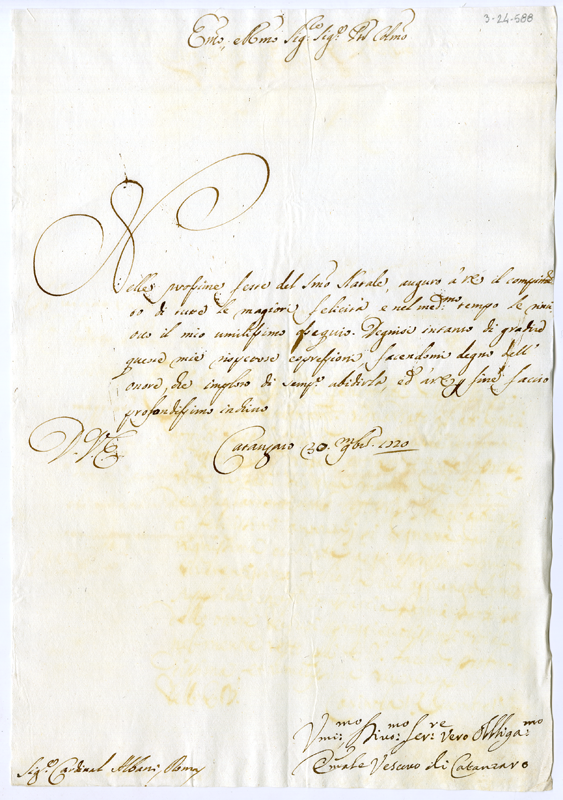 3-24-588
Em̃o, e Rm̃o Sig.r Sig.r Pñ Colm̃o
Nelle prossime feste del Sm̃o Natale, auguro à VE il compimen
to di tutte le magiori felicità e nel med.mo tempo le rino
vo il mio umilissimo osequio. Degnisi intanto di gradire
queste mie rispetose espressioni, facendomi degno dell'
onore, che imploro di semp.e ubidirla, ed à VE p fine faccio
profondissimo inchino
D. VE
Catanzaro 30. 9bre 1720
Vmi.mo Divo.mo Ser.re vero Obbliga.mo
Vescovo di Catanzaro
Sig.r Cardinal Albani Roma